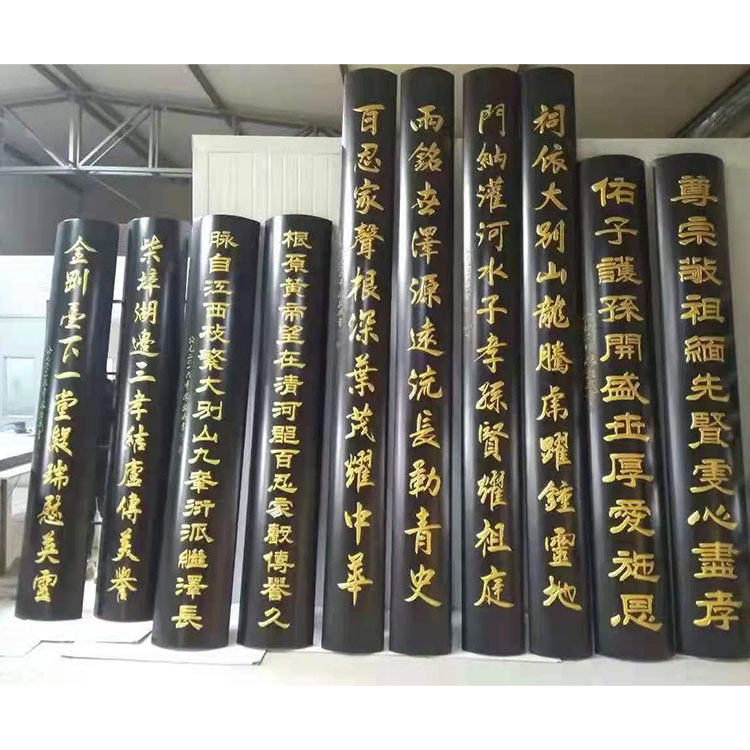 尊宗敬祖緬先賢虔心盡孝
佑子護孫開盛世厚愛施恩
祠依大別山龍騰虎躍鍾靈地
門納灌河水子孝孫賢耀祖庭
兩銘世澤源遠流長勒青史
百忍家聲根深葉茂耀中華
根原黄帝望在清河郡百忍家聲傳譽久
脉自江西枝繁大别山九峯衍派繼澤長
公元二〇一六年
柴埠湖邊三孝結廬傳美譽
金剛臺下一堂綴瑞慰英靈